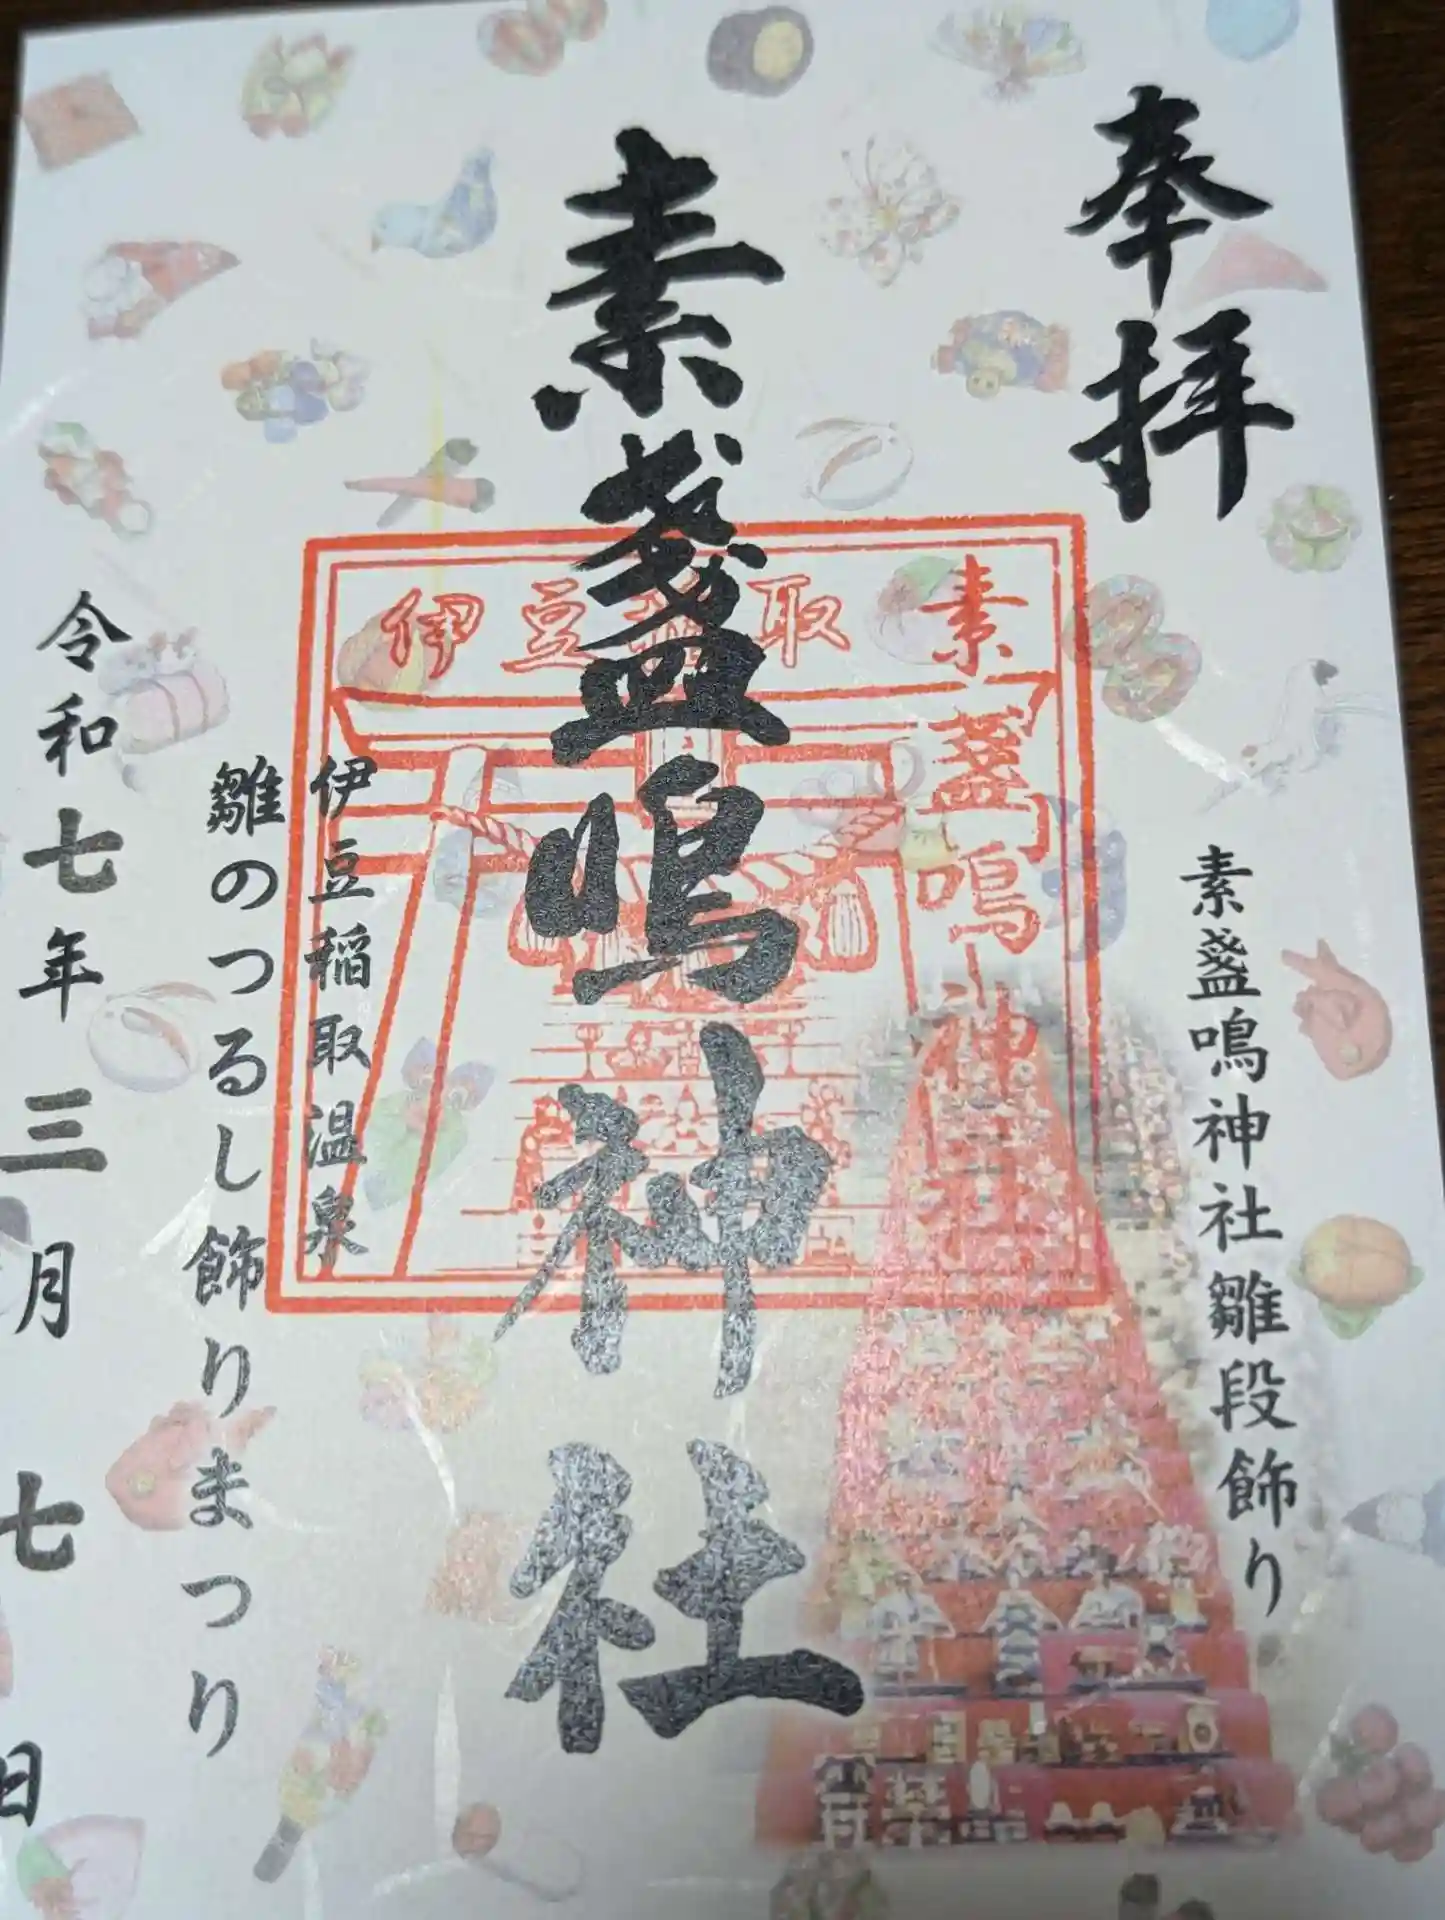 奉拝
素盞嗚神社雛段飾り
素盞嗚神社
素盞嗚神社
伊豆稲取
伊豆稲取温泉
雛のつるし飾りまつり
令和七年三月七日